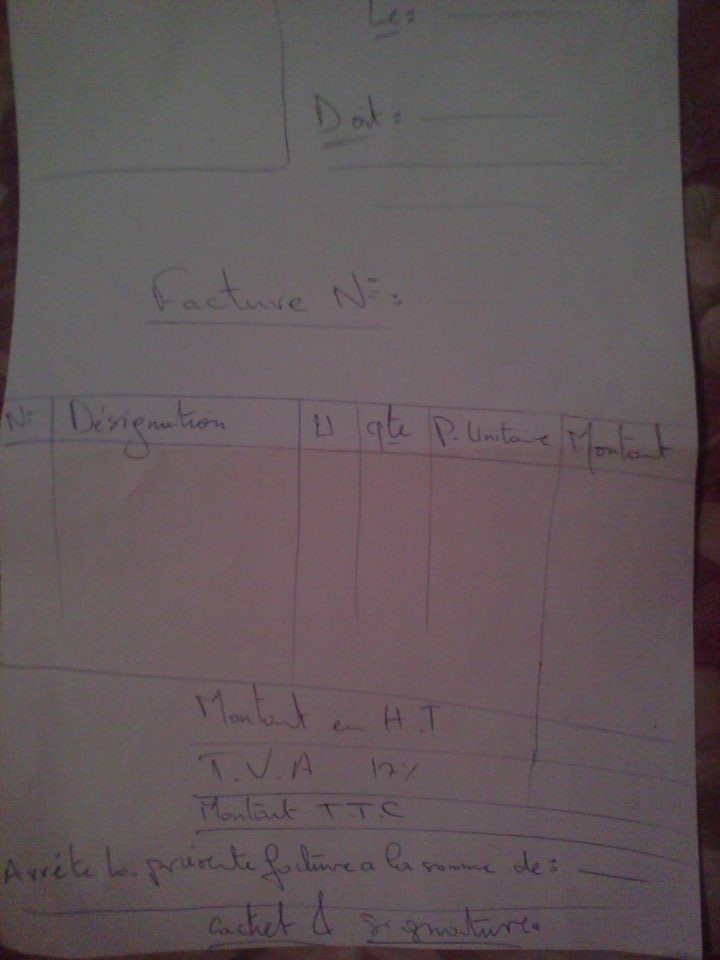 Le:
Doit:
Facture N°:
N° Désignation U qte P. Unitaire Montant
Montant en H.T
T.V.A 17%
Montant T.T.C
Arréte la présente facture a la somme de:
cachet & signature